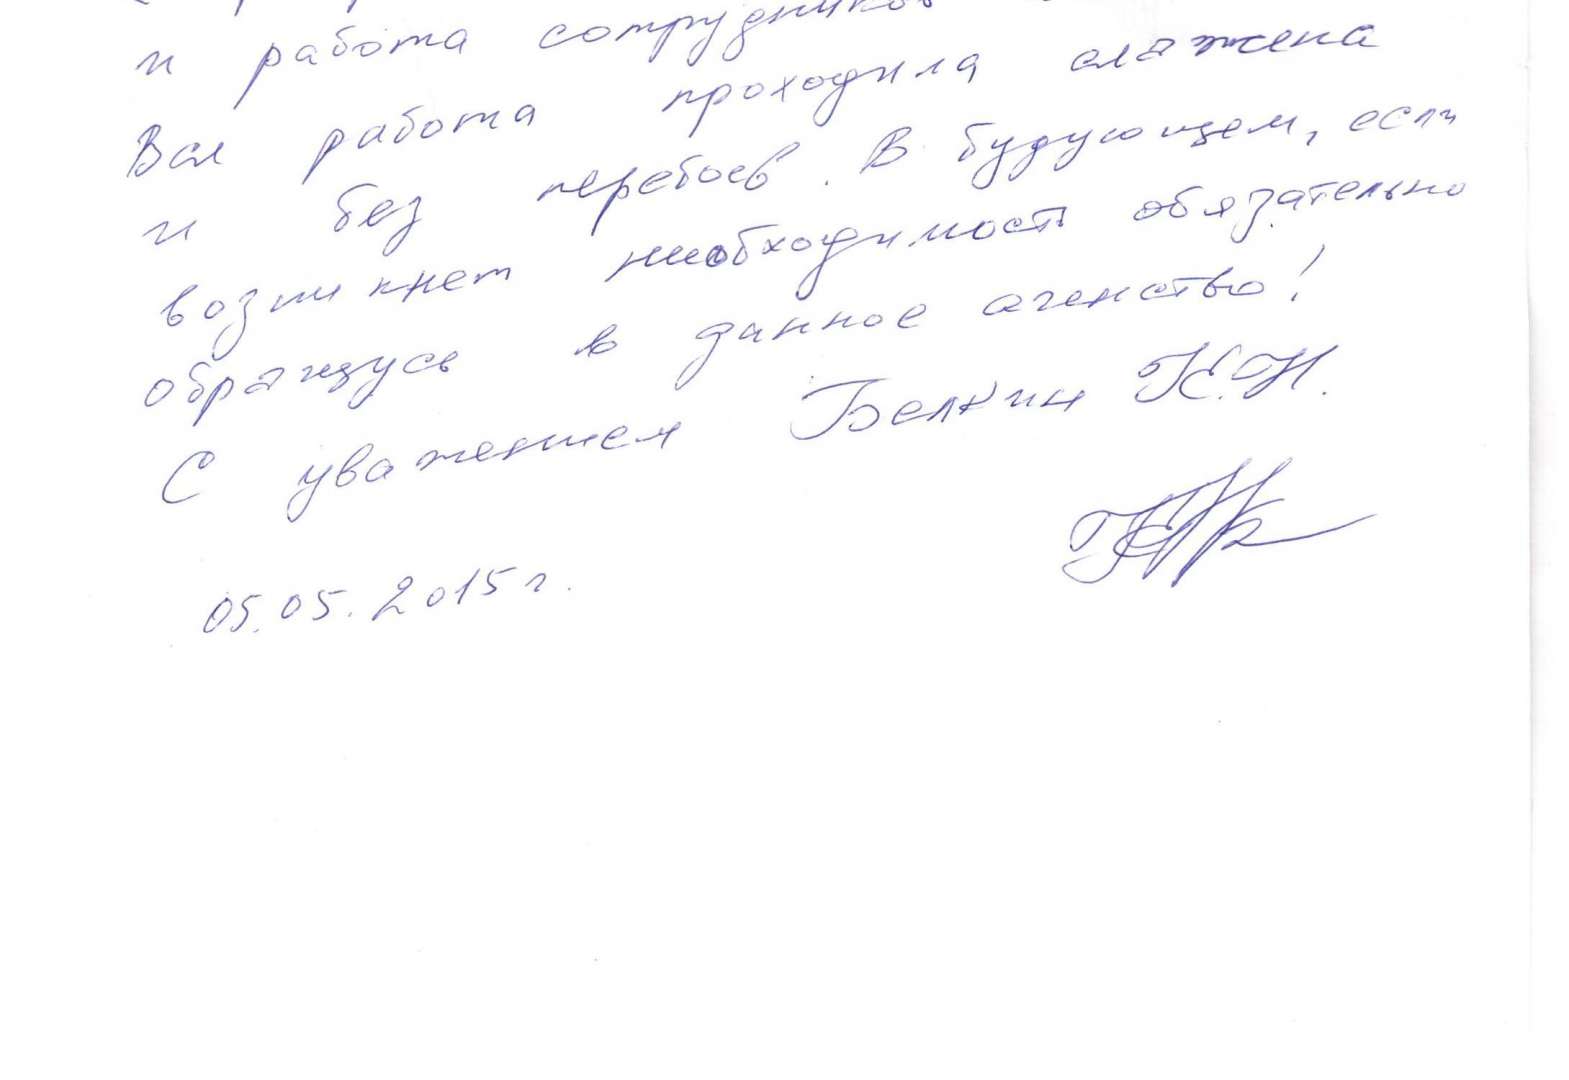 и работа сотрудников
Вся работа проходила слажена
и без перебоев. В будующем, если
возникнет необходимость обязательно
обращусь в данное агенство!
С уважением Белкин К.Н.
05.05.2015г.